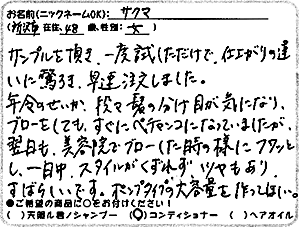 お名前(ニックネームOK): サクマ
(所沢市 在住、48 歳、性別: 女)
サンプルを頂き、一度試しただけで、仕上がりの違
いに驚ろき、早速注文しました。
年令のせいか、段々髪の分け目が気になり、
ブローをしても、すぐにペチャンコになっていましたが、
翌日も、美容院でブローした時の様にフワッと
し、一日中、スタイルがくずれず、ツヤもあり、
すばらしいです。ポンプタイプの大容量を作ってほしい。
●ご希望の商品に○をお付けください!
( )天使ル君ノシャンプー (○)コンディショナー ( )ヘアオイル